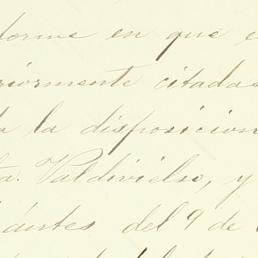 forme en que e
riormente citadas
a la disposicion
ta. Valdivielso, y
ántes del 9 de